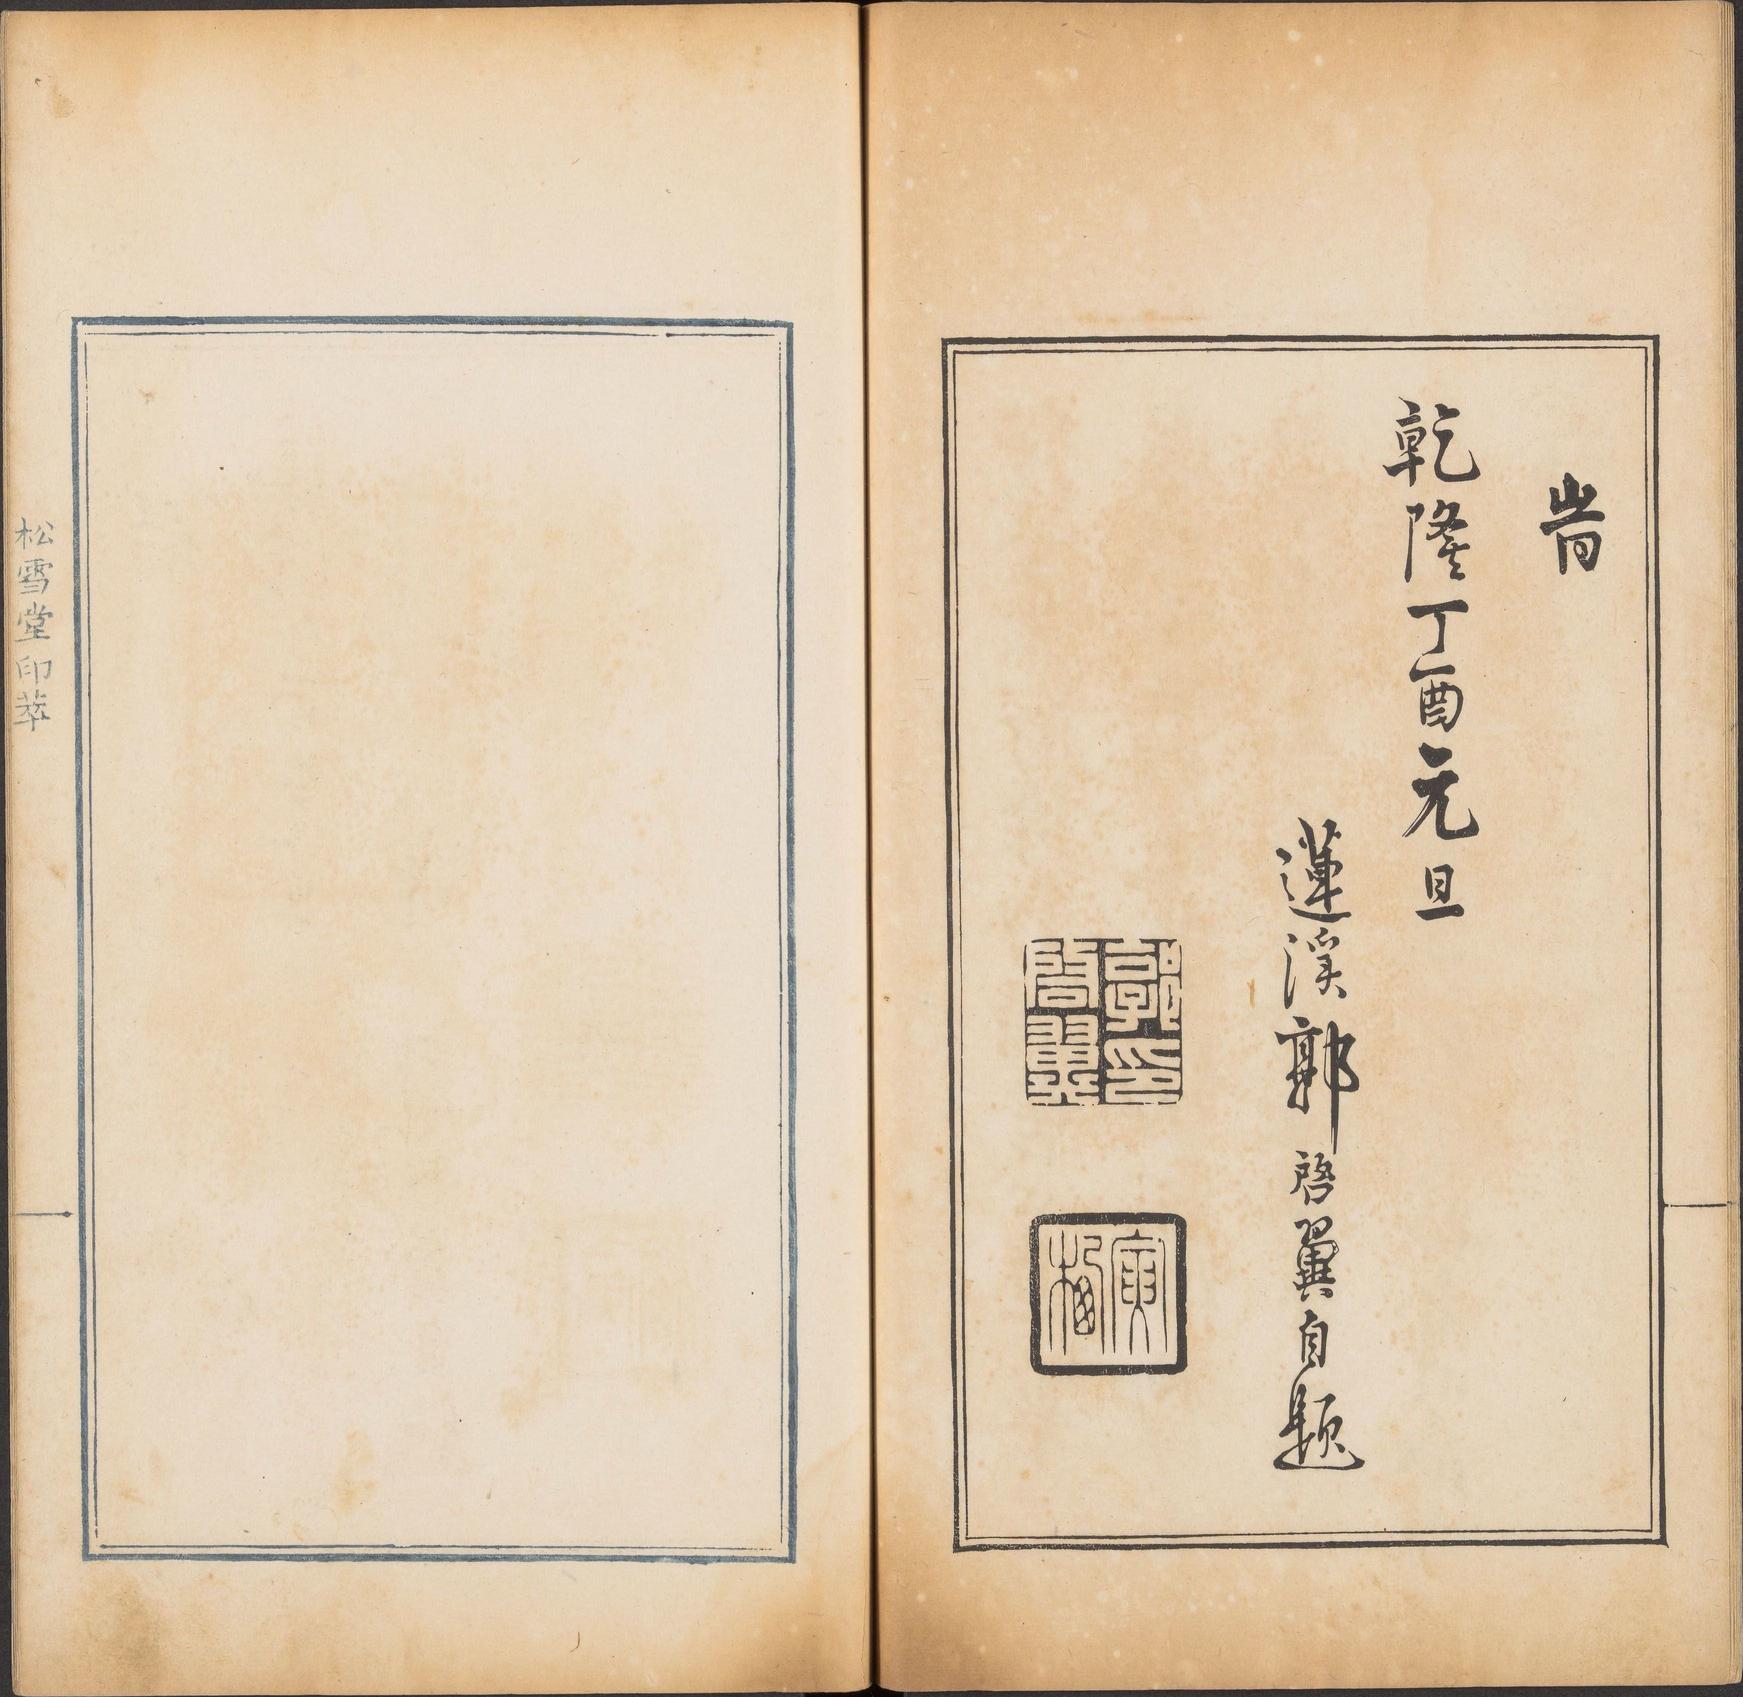 旹
乾隆丁酉元旦
蓮溪郭啓翼自題
郭印
啓翼
松雪堂印萃